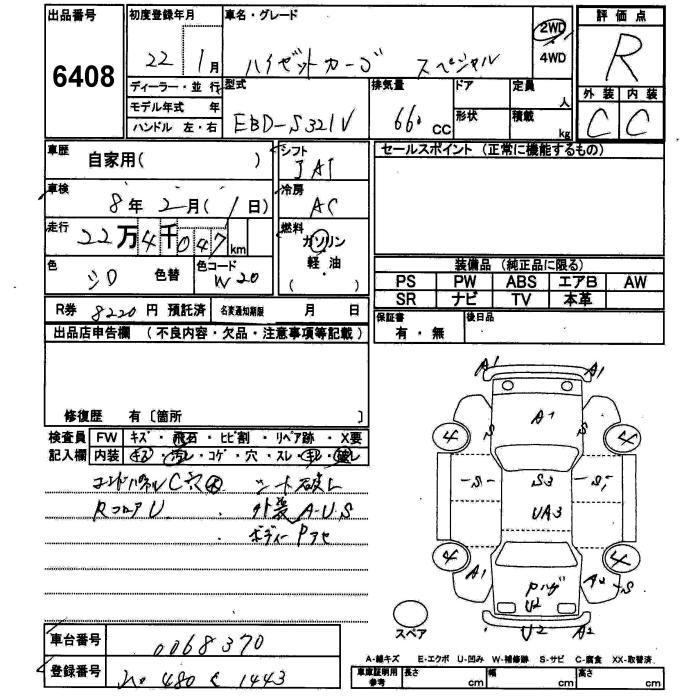 出品番号
6408
初度登録年月
22年 1月
ディーラー・並行
モデル年式 年
ハンドル 左・右
車名・グレード
ハイゼットカーゴ スペシャル
2WD
4WD
型式
EBD-S321V
排気量
660 CC
ドア
形状
定員
人
積載
kg
評価点
R
外装 内装
C C
車歴
自家用( )
車検
8年 2月( 1日)
走行
22万4千047km
色
シロ 色替
色コード
W20
シフト
冷房
AC
燃料
ガソリン
軽・油
( ・ )
R券 8220円 預託済
名変通知期限 月 日
セールスポイント (正常に機能するもの)
装備品 (純正品に限る)
PS PW ABS エアB AW
SR ナビ TV 本革
保証書
有・無
後日品
出品店申告欄 (不良内容・欠品・注意事項等記載)
修復歴 有〔箇所 〕
検査員
記入欄
FW キズ・飛石・ヒビ割・リペア跡・X要
内装 キズ・汚レ・コゲ・穴・スレ・キレ・破レ
シート破レ
RコアU
外装A-U-S
A1 A1
A1
S S
4 4
-S- S3 -S-
UA3
4 4
A1 A2 -S
U2
U2 A2
スペア
車台番号
0068370
登録番号
480 1443
A-線キズ E-エクボ U-凹み W-補修跡 S-サビ C-腐食 XX-取替済
車庫証明用
参考
長さ cm 幅 cm 高さ cm